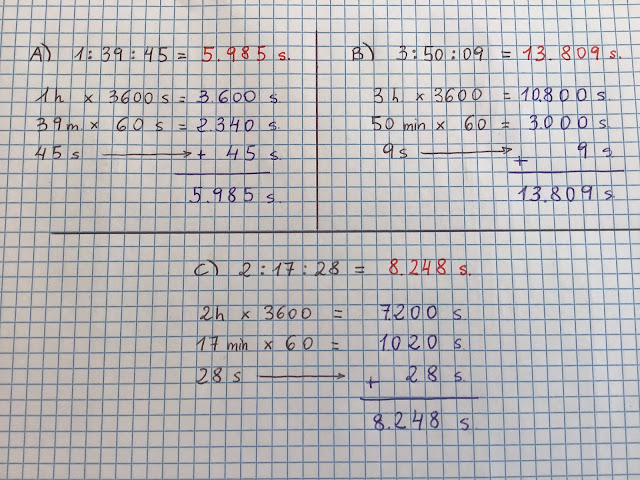 A) 1:39:45 = 5.985 s.
1h x 3600 s = 3.600 s.
39 m. x 60 s = 2.340 s.
45 s + 45 s.
5.985 s.
B) 3:50:09 = 13.809 s.
3h. x 3600 = 10.800 s.
50 min x 60 = 3.000 s.
9s + 9 s.
13.809 s.
C) 2:17:28 = 8.248 s.
2h x 3600 = 7.200 s.
17 min x 60 = 1.020 s.
28 s + 28 s.
8.248 s.